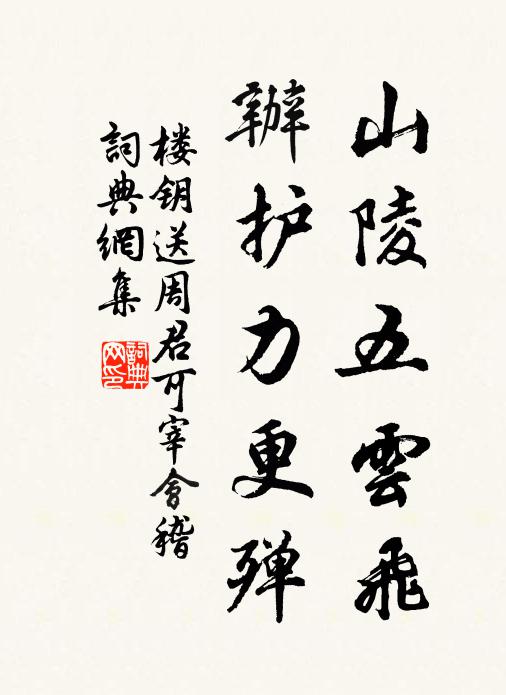 山陵五雲飛
辦护力更殫
楼钥送周君可宰會稽
詞典網集
詞典网印